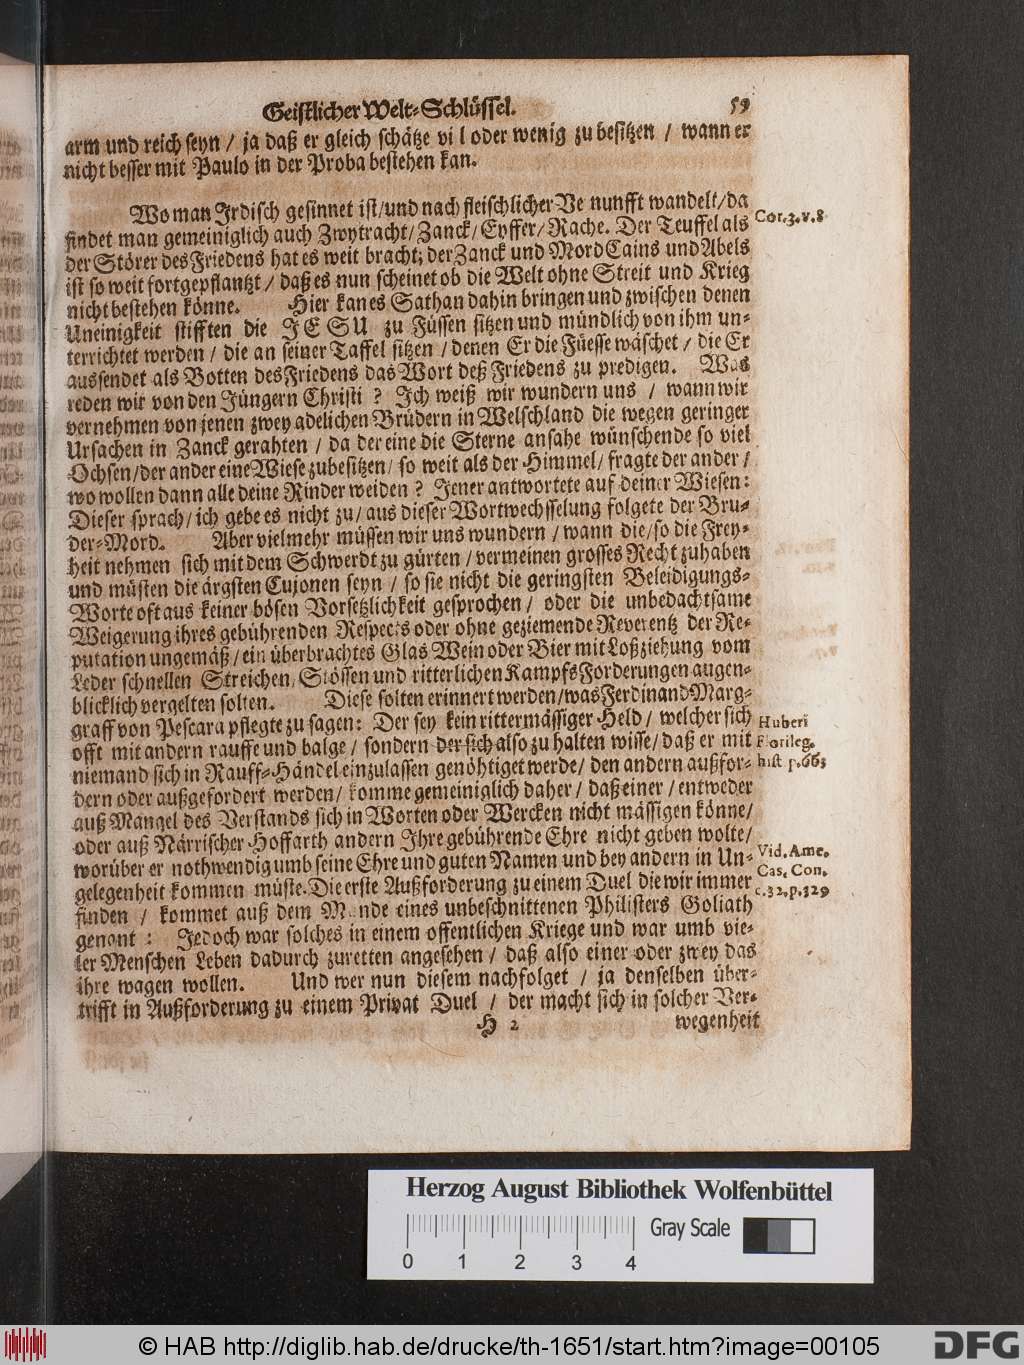 Geistlicher Welt-Schlüssel. 59
arm und reich seyn / ja daß er gleich schätze vi l oder wenig zu besitzen / wann er
nicht besser mit Paulo in der Proba bestehen kan.
Wo man Irdisch gesinnet ist / und nach fleischlicher Ve nunfft wandelt / da
Cor. 3. v. 8
findet man gemeiniglich auch Zwytracht / Zanck / Eyffer / Rache. Der Teuffel als
der Störer des Friedens hat es weit bracht; der Zanck und Mord Cains und Abels
ist so weit fortgepflantzt / daß es nun scheinet ob die Welt ohne Streit und Krieg
nicht bestehen könne. Hier kan es Sathan dahin bringen und zwischen denen
Uneinigkeit stifften die JESU zu Füssen sitzen und mündlich von ihm un-
terrichtet werden / die an seiner Taffel sitzen / denen Er die Füesse wäschet / die Er
aussendet als Botten des Friedens das Wort deß Friedens zu predigen. Was
reden wir von den Jüngern Christi ? Ich weiß wir wundern uns / wann wir
vernehmen von jenen zwey adelichen Brüdern in Welschland die wegen geringer
Ursachen in Zanck gerahten / da der eine die Sterne ansahe wünschende so viel
Ochsen / der ander eine Wiese zubesitzen / so weit als der Himmel / fragte der ander /
wo wollen dann alle deine Rinder weiden ? Jener antwortete auf deiner Wiesen:
Dieser sprach / ich gebe es nicht zu / aus dieser Wortwechsselung folgete der Bru-
der-Mord. Aber vielmehr müssen wir uns wundern / wann die / so die Frey-
heit nehmen sich mit dem Schwerdt zu gürten / vermeinen grosses Recht zuhaben
und müsten die ärgsten Cujonen seyn / so sie nicht die geringsten Beleidigungs-
Worte oft aus keiner bösen Vorsetzlichkeit gesprochen / oder die unbedachtsame
Weigerung ihres gebührenden Respects oder ohne geziemende Reverentz der Re-
putation ungemäß / ein überbrachtes Glas Wein oder Bier mit Loßziehung vom
Leder schnellen Streichen, Stössen und ritterlichen Kampfs Forderungen augen-
blicklich vergelten solten. Diese solten erinnert werden / was Ferdinand Marg-
graff von Pescara pflegte zu sagen: Der sey kein rittermässiger Held / welcher sich
Huberi
offt mit andern rauffe und balge / sondern der sich also zu halten wisse / daß er mit
Florileg.
niemand sich in Rauff-Händel einzulassen genöhtiget werde / den andern außfor-
hist p. 663
dern oder außgefordert werden / komme gemeiniglich daher / daß einer / entweder
auß Mangel des Verstands sich in Worten oder Wercken nicht mässigen könne /
oder auß Närrischer Hoffarth andern Ihre gebührende Ehre nicht geben wolte /
worüber er nothwendig umb seine Ehre und guten Namen und bey andern in Un-
Vid. Ame.
gelegenheit kommen müste. Die erste Außforderung zu einem Duel die wir immer
Cas. Con.
c. 32. p. 329
finden / kommet auß dem M nde eines unbeschnittenen Philisters Goliath
genant : Jedoch war solches in einem offentlichen Kriege und war umb vie-
ler Menschen Leben dadurch zuretten angesehen / daß also einer oder zwey das
ihre wagen wollen. Und wer nun diesem nachfolget / ja denselben über-
trifft in Außforderung zu einem Privat Duel / der macht sich in solcher Ver-
H 2 wegenheit
Herzog August Bibliothek Wolfenbüttel
Gray Scale
0 1 2 3 4
© HAB http://diglib.hab.de/drucke/th-1651/start.htm?image=00105
DFG